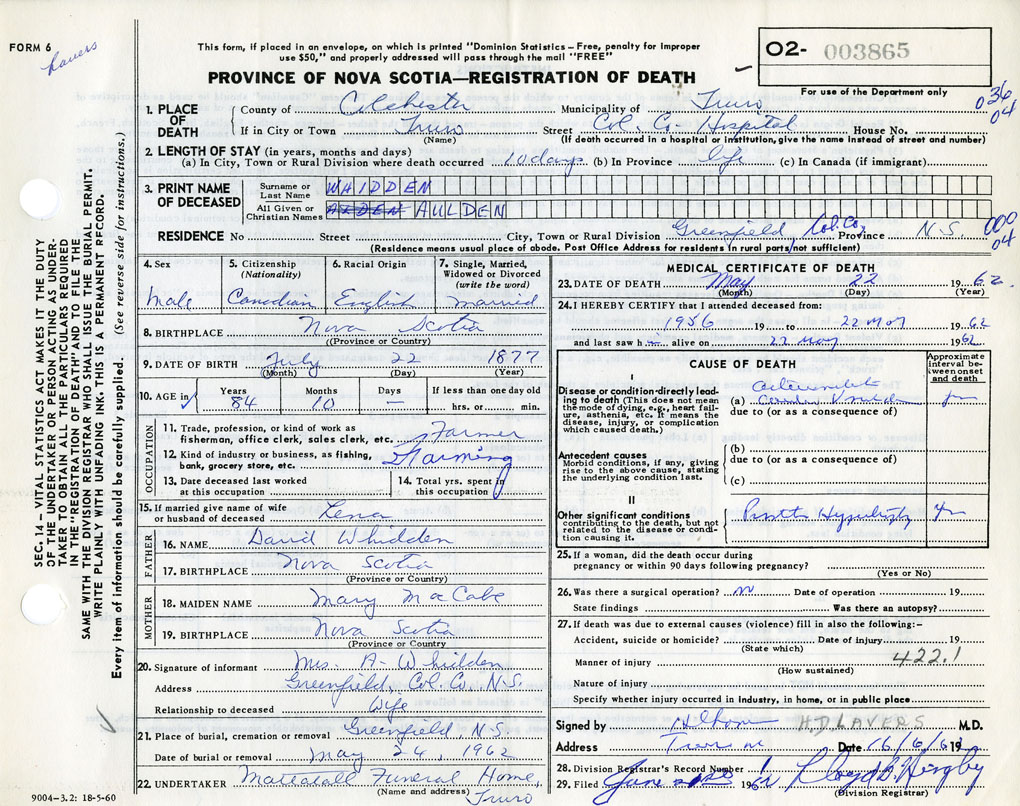 FORM 6
Lavers
This form, if placed in an envelope, on which is printed "Dominion Statistics – Free, penalty for improper
use $50," and properly addressed will pass through the mail "FREE"
PROVINCE OF NOVA SCOTIA—REGISTRATION OF DEATH
O2- 003865
For use of the Department only
036
04
1. PLACE OF DEATH
County of Colchester Municipality of Truro
If in City or Town Truro Street Col. Co. Hospital House No.
(Name) (If death occurred in a hospital or institution, give the name instead of street and number)
2. LENGTH OF STAY (in years, months and days)
(a) In City, Town or Rural Division where death occurred 10 days (b) In Province life (c) In Canada (if immigrant)
3. PRINT NAME OF DECEASED
Surname or Last Name WHIDDEN
All Given or Christian Names ALDEN AULDEN
RESIDENCE No Street City, Town or Rural Division Greenfield, Col. Co. Province N.S.
(Residence means usual place of abode. Post Office Address for residents in rural parts not sufficient)
000
04
4. Sex Male
5. Citizenship (Nationality) Canadian
6. Racial Origin English
7. Single, Married, Widowed or Divorced (write the word) married
8. BIRTHPLACE Nova Scotia
(Province or Country)
9. DATE OF BIRTH July 22 1877
(Month) (Day) (Year)
10. AGE in Years 84 Months 10 Days – If less than one day old hrs. or min.
OCCUPATION
11. Trade, profession, or kind of work as fisherman, office clerk, sales clerk, etc. Farmer
12. Kind of industry or business, as fishing, bank, grocery store, etc. Farming
13. Date deceased last worked at this occupation
14. Total yrs. spent in this occupation
15. If married give name of wife or husband of deceased Lena
FATHER
16. NAME David Whidden
17. BIRTHPLACE Nova Scotia
(Province or Country)
MOTHER
18. MAIDEN NAME Mary MacCabe
19. BIRTHPLACE Nova Scotia
(Province or Country)
20. Signature of informant Mrs. A. Whidden
Address Greenfield, Col. Co. N.S.
Relationship to deceased Wife
21. Place of burial, cremation or removal Greenfield, N.S.
Date of burial or removal May 24, 1962
22. UNDERTAKER Mattatall Funeral Home,
(Name and address) Truro
9004-3.2: 18-5-60
MEDICAL CERTIFICATE OF DEATH
23. DATE OF DEATH May 22 1962.
(Month) (Day) (Year)
24. I HEREBY CERTIFY that I attended deceased from:
1956 19 to 22 May 1962
and last saw h im alive on 22 May 1962
CAUSE OF DEATH
Approximate interval between onset and death
I
Disease or condition directly leading to death (This does not mean the mode of dying, e.g., heart failure, asthenia, etc. It means the disease, injury, or complication which caused death.)
(a)
due to (or as a consequence of)
Antecedent causes
Morbid conditions, if any, giving rise to the above cause, stating the underlying condition last.
(b)
due to (or as a consequence of)
(c)
II
Other significant conditions
contributing to the death, but not related to the disease or condition causing it.
Hypertrophy
25. If a woman, did the death occur during
pregnancy or within 90 days following pregnancy?
(Yes or No)
26. Was there a surgical operation? no Date of operation 19
State findings Was there an autopsy?
27. If death was due to external causes (violence) fill in also the following:–
Accident, suicide or homicide? Date of injury 19
(State which)
422.1
Manner of injury
(How sustained)
Nature of injury
Specify whether injury occurred in industry, in home, or in public place
Signed by H.D. LAVERS M.D.
Address Truro Date 16/6/62 19
28. Division Registrar's Record Number
29. Filed 1962
(Division Registrar)
SEC. 14 – VITAL STATISTICS ACT MAKES IT THE DUTY
OF THE UNDERTAKER OR PERSON ACTING AS UNDER-
TAKER TO OBTAIN ALL THE PARTICULARS REQUIRED
IN THE "REGISTRATION OF DEATH" AND TO FILE THE
SAME WITH THE DIVISION REGISTRAR WHO SHALL ISSUE THE BURIAL PERMIT.
WRITE PLAINLY WITH UNFADING INK. THIS IS A PERMANENT RECORD.
Every item of information should be carefully supplied. (See reverse side for instructions.)